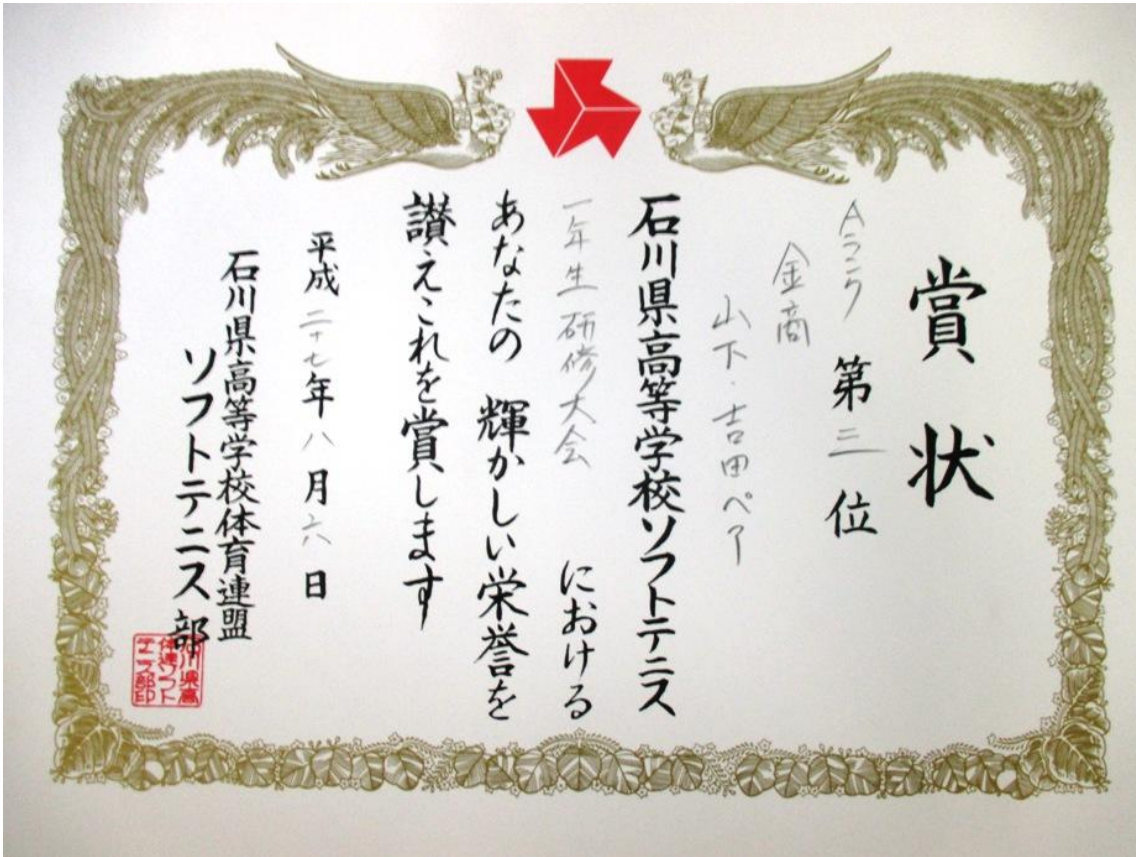 賞状
Aランク 第三位
金商
山下・吉田ペア
石川県高等学校ソフトテニス
一年生研修大会 における
あなたの 輝かしい栄誉を
讃えこれを賞します
平成二十七年八月六日
石川県高等学校体育連盟
ソフトテニス部